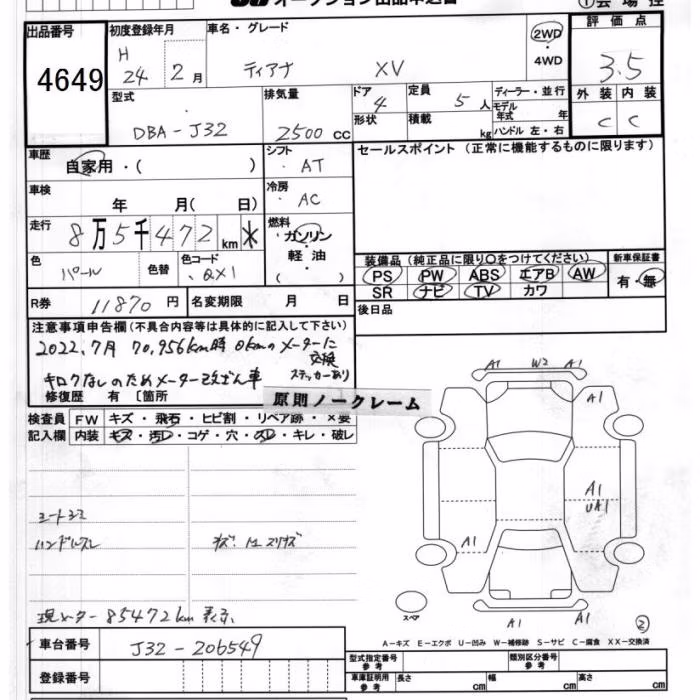 オークション出品申込書
①会場控
出品番号 4649
初度登録年月 H 24 2月
車名・グレード ティアナ XV
2WD・4WD
評価点 3.5
外装 C 内装 C
型式 DBA-J32
排気量 2500 CC
ドア 4 形状
定員 5人 積載 kg
ディーラー・並行
モデル年式 年
ハンドル 左・右
車歴 自家用・( )
シフト AT
セールスポイント(正常に機能するものに限ります)
車検 年 月( 日)
冷房 AC
走行 8万5千472km *
燃料 ガソリン・軽油・( )
色 パール 色替 色コード QX1
装備品(純正品に限り○をつけてください)
新車保証書 有・無
PS PW ABS エアB AW
SR ナビ TV カワ
R券 11870円 名変期限 月 日
後日品
注意事項申告欄(不具合内容等は具体的に記入して下さい)
2022.7月 70,956km時 0kmのメーターに交換
キロクなしのためメーター改ざん車 ステッカーあり
修復歴 有 [箇所
原則ノークレーム
検査員記入欄
FW キズ・飛石・ヒビ割・リペア跡・×要
内装 キズ・汚レ・コゲ・穴・スレ・キレ・破レ
シートシミ
ハンドルスレ
現メーター 85472km 表示
A1 W2 A1
A1
A1
UA1
A1
A1 A1
スペア
②
A-キズ E-エクボ U-凹み W-補修跡 S-サビ C-腐食 XX-交換済
車台番号 J32-206549
登録番号
型式指定番号 参考 類別区分番号 参考
車庫証明用 参考 長さ cm 幅 cm 高さ cm